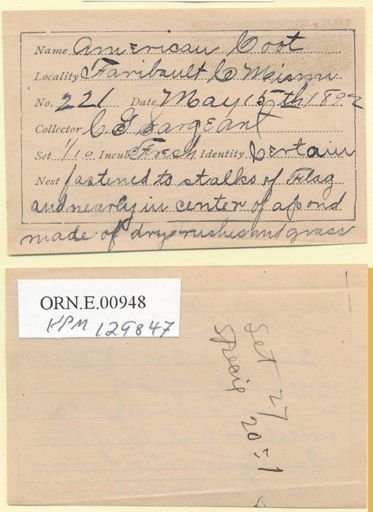 Name American Coot
Locality Faribault C Minn
No. 221 Date May 15th 1892
Collector C G Sargeant
Set 1/10 Incub Fresh Identity Certain
Nest fastened to stalks of Flag
and nearly in center of a pond
made of dry rushes and grass
ORN.E.00948
KPM 129847
Set 27
Specie 20=1